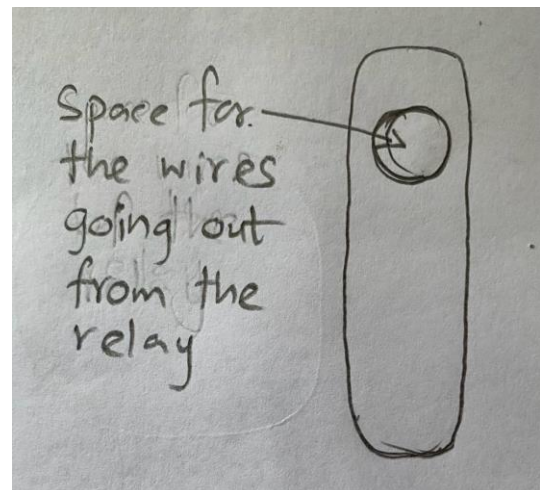 Space for
the wires
going out
from the
relay